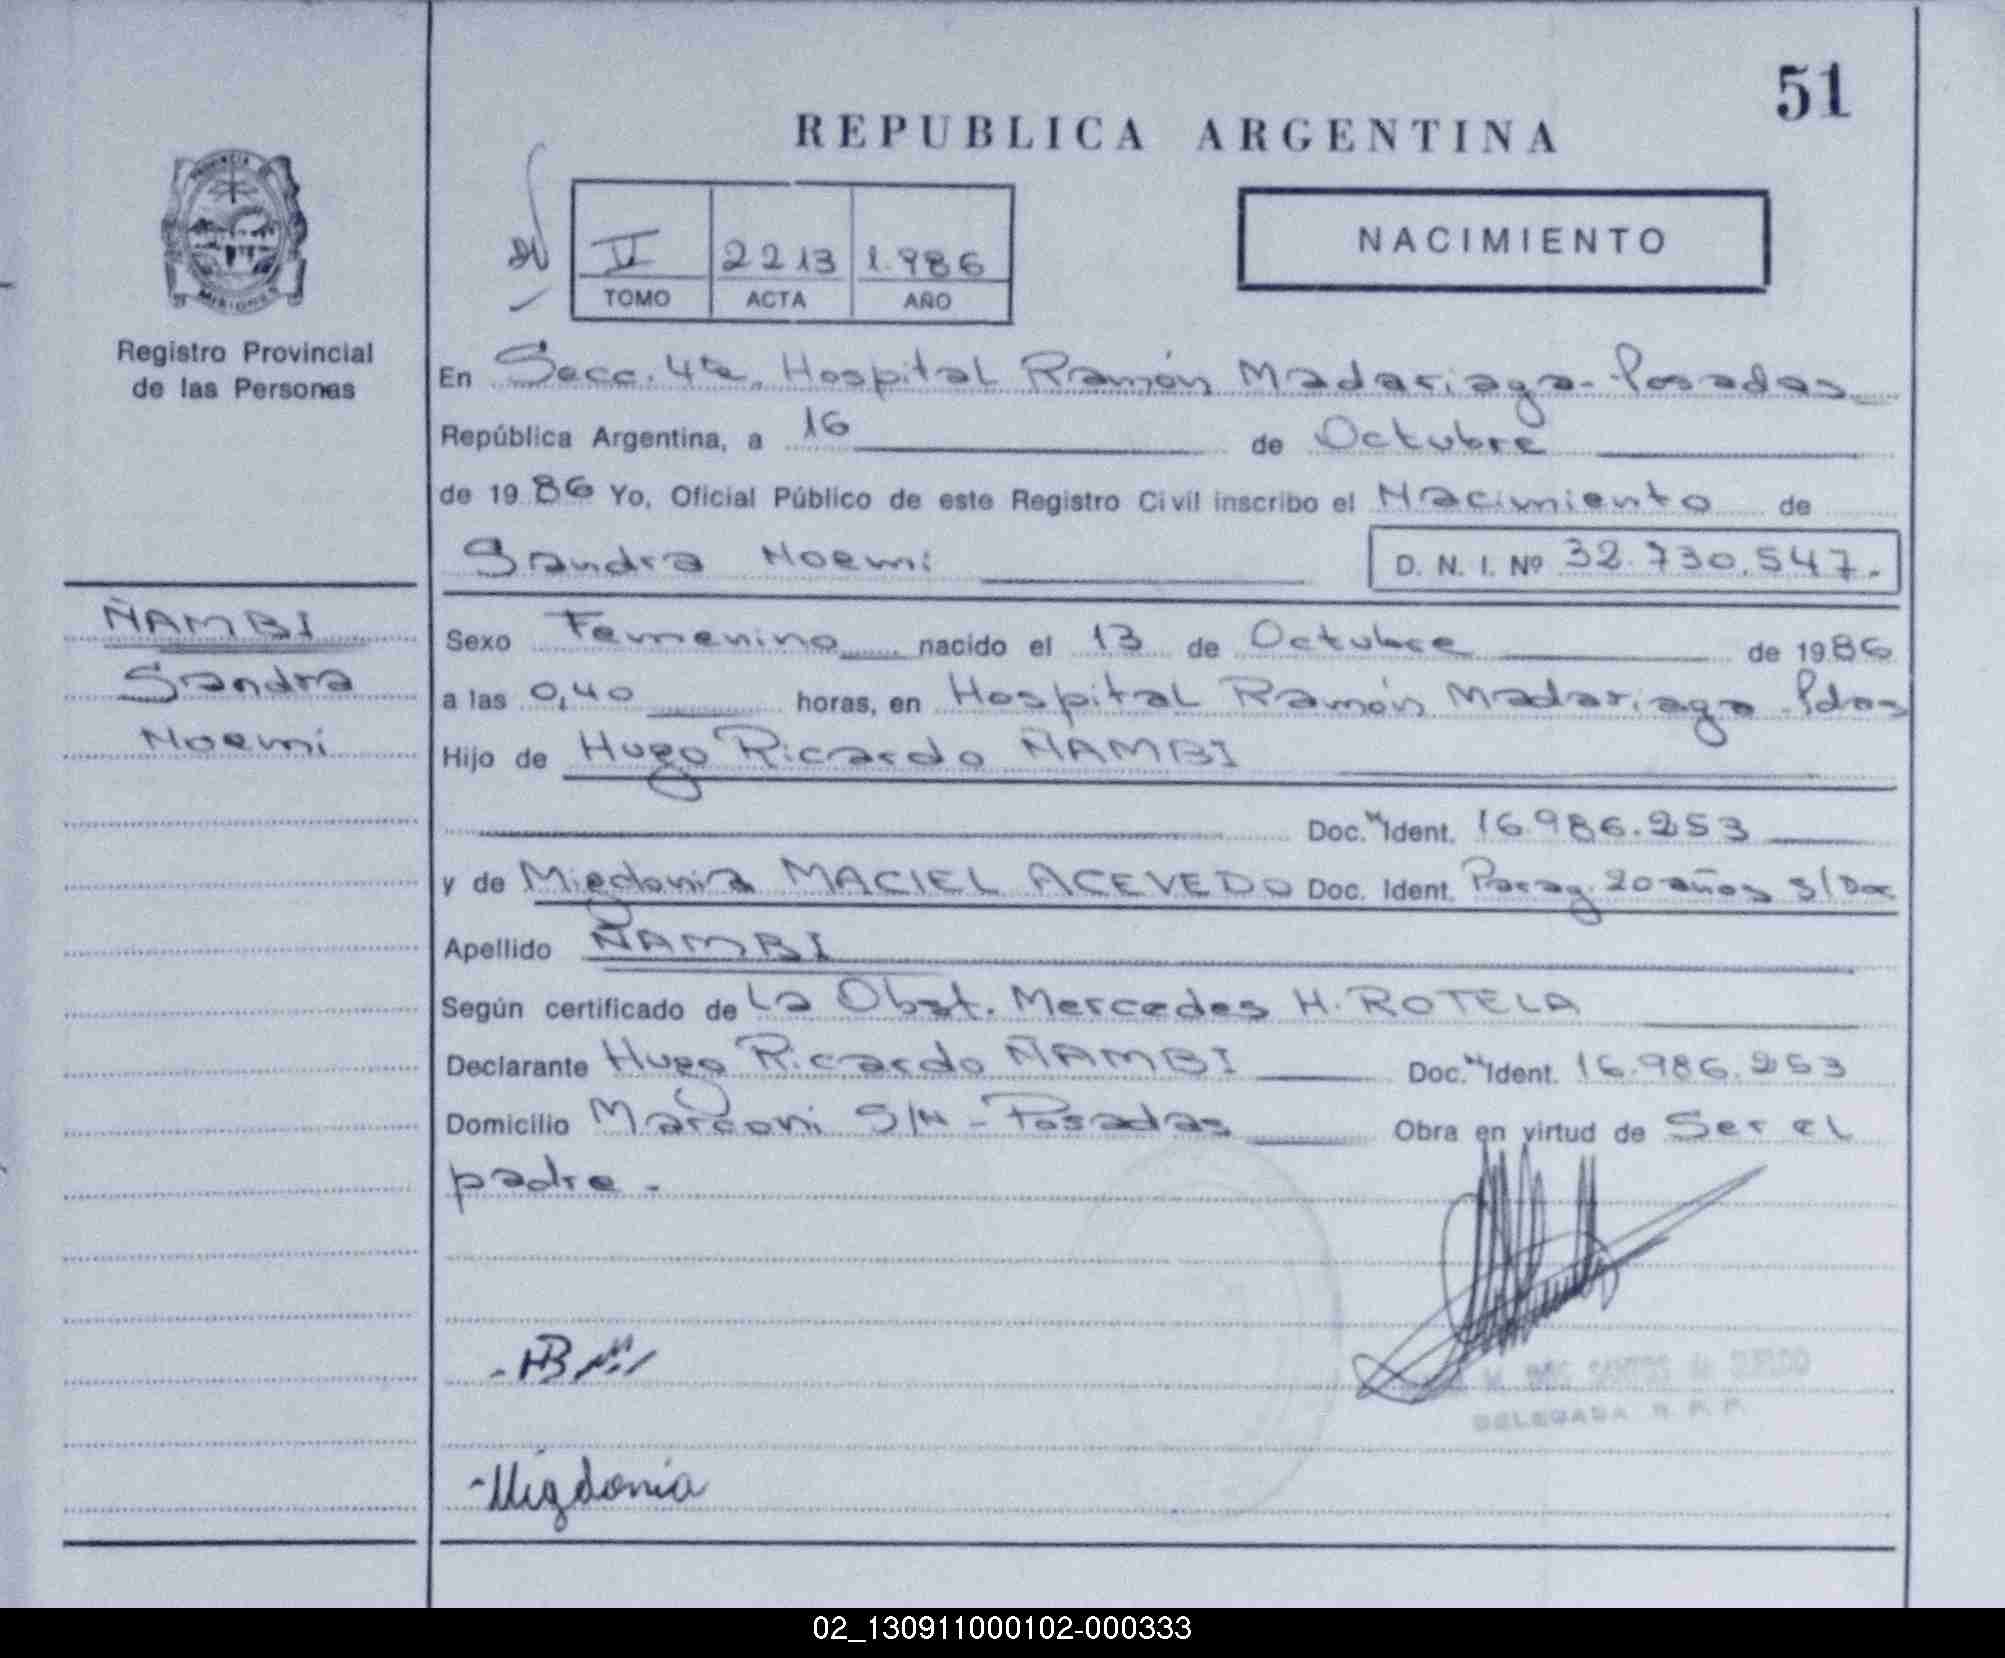 51
REPUBLICA ARGENTINA
PROVINCIA
MISIONES
Registro Provincial
de las Personas
II 2213 1.986
TOMO ACTA AÑO
NACIMIENTO
En Secc. 4ta. Hospital Ramón Madariaga - Posadas
República Argentina, a 16 de Octubre
de 1986 Yo, Oficial Público de este Registro Civil inscribo el Nacimiento de
Sandra Noemi D. N. I. Nº 32.730.547.
ÑAMBI
Sandra
Noemi
Sexo Femenino nacido el 13 de Octubre de 1986
a las 0,40 horas, en Hospital Ramón Madariaga - Pdas
Hijo de Hugo Ricardo ÑAMBI
Doc. Ident. 16.986.253
y de Migdonia MACIEL ACEVEDO Doc. Ident. Parag. 20 años s/Doc
Apellido ÑAMBI
Según certificado de La Obst. Mercedes H. ROTELA
Declarante Hugo Ricardo ÑAMBI Doc. Ident. 16.986.253
Domicilio Marconi S/N - Posadas Obra en virtud de Ser el
padre.
DELEGADA R. P. P.
-Migdonia
02_130911000102-000333